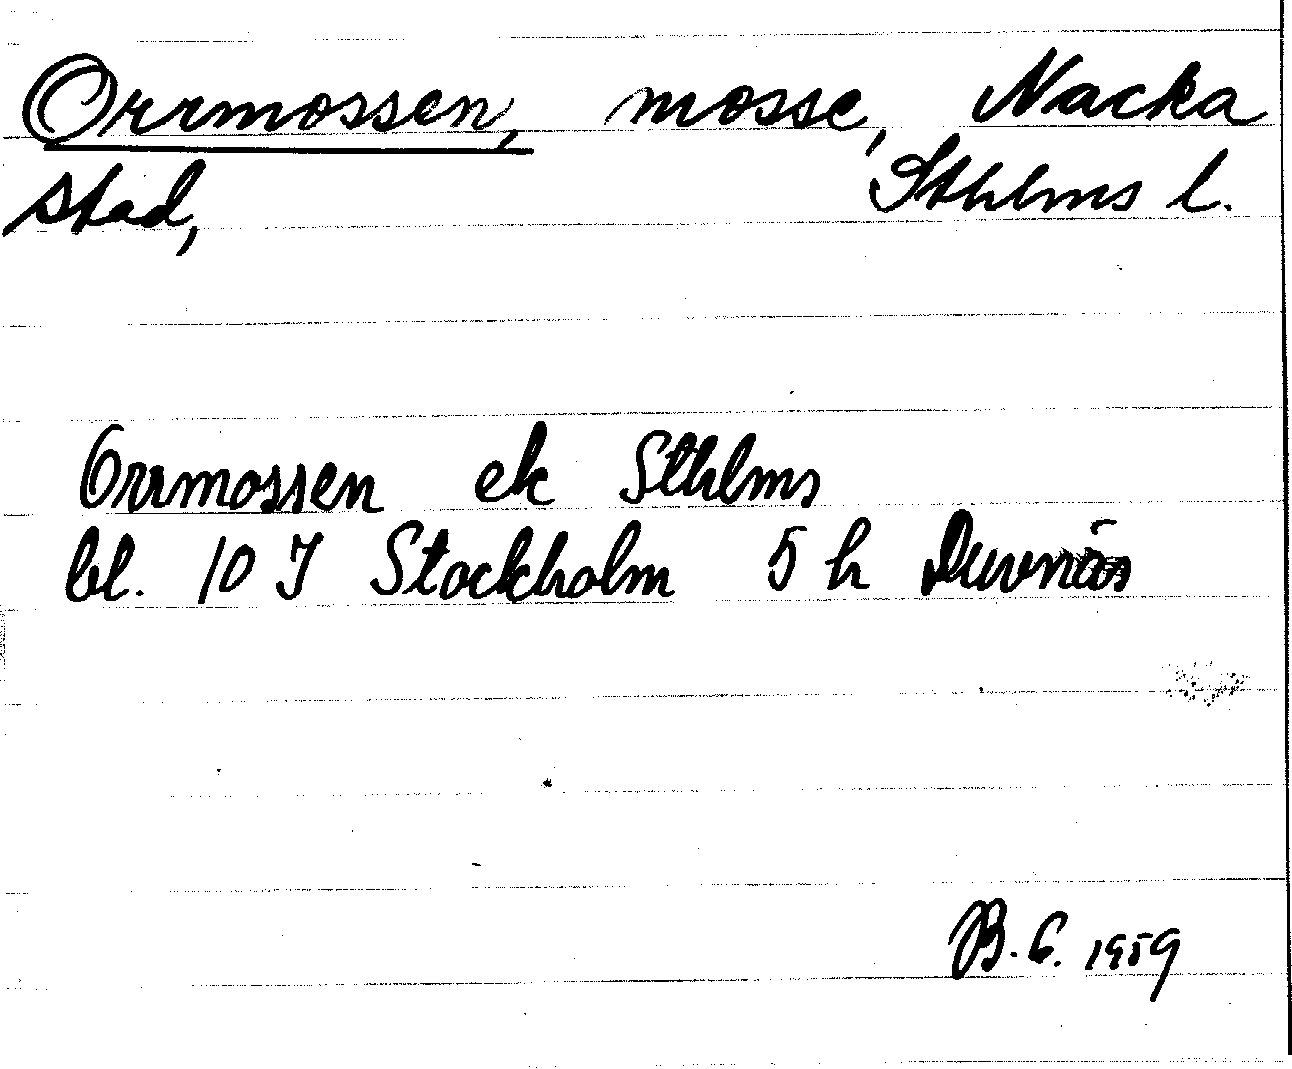 Orrmossen, mosse, Nacka
stad, Sthlms l.
Orrmossen ek Sthlms
bl. 10 I Stockholm 5 h Duvnäs
B. G. 1959